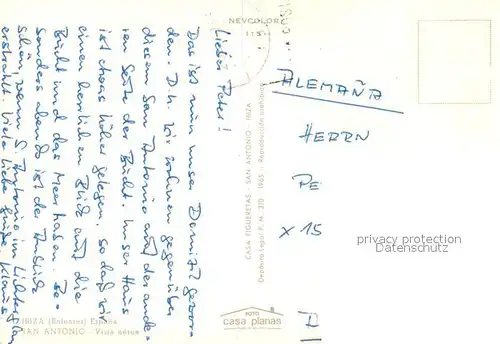 Lieber Peter!
Das ist nun unser Domizil gewor-
den. D.h. wir wohnen gegenüber
diesem San Antonio auf der ande-
ren Seite der Bucht. Unser Haus
ist etwas höher gelegen, so daß wir
einen herrlichen Blick auf die
Bucht und das Meer haben. Be-
sonders abends ist der Anblick
schön, wenn S. Antonio im Lichterglanz
erstrahlt. Viele liebe Grüße, Klaus
IBIZA (Baleares) España
SAN ANTONIO - Vista aérea
NEVCOLOR
115
CASA FIGUERETAS - SAN ANTONIO - IBIZA
Depósito Legal P. M. 310 - 1965 - Reproducción prohibida
ALEMAÑA
HERRN
PE
X 15
privacy protection
www.ansichtskartenversand.com
FOTO
casa planas